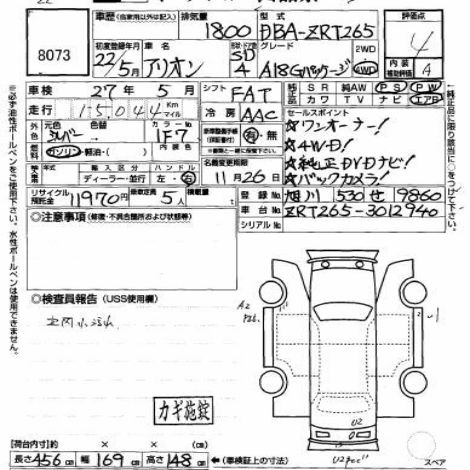 8073
車歴 (自家用以外は記入) 排気量 1800 型式 DBA-ZRT265 評価点 4
初度登録年月 22/5月 車名 アリオン ドア 形状 SD 4 グレード A18Gパッケージ 2WD 4WD 内装 補助評価 A
車検 27年 5月 シフト FAT 純正 SR 純AW PS PW
走行 15,044 Km マイル 冷房 AAC カワ TV ナビ エアB
外色 元色 シルバー 色替 カラーNo. 1F7 有・無 セールスポイント
☆ワンオーナー!
☆4WD!
燃料 ガソリン 軽油・( ) 内色
☆純正DVDナビ!
輸入区分 ディーラー・並行 ハンドル 左・右 11月26日
☆バックカメラ!
リサイクル預託金 11970円 乗車定員 5人 積載量 登録No. 旭川 530 せ 9860
車台No. ZRT265-3012940
シリアルNo.
○注意事項 (修復・不具合箇所および状態等)
○検査員報告 (USS使用欄)
室内小汚れ
カギ施錠
A2
U2
スペア
(荷台内寸) × × (車検証上の寸法)
長さ 456cm 幅 169cm 高さ 148cm
※必ず油性ボールペンをご使用下さい。水性ボールペンは使用できません。